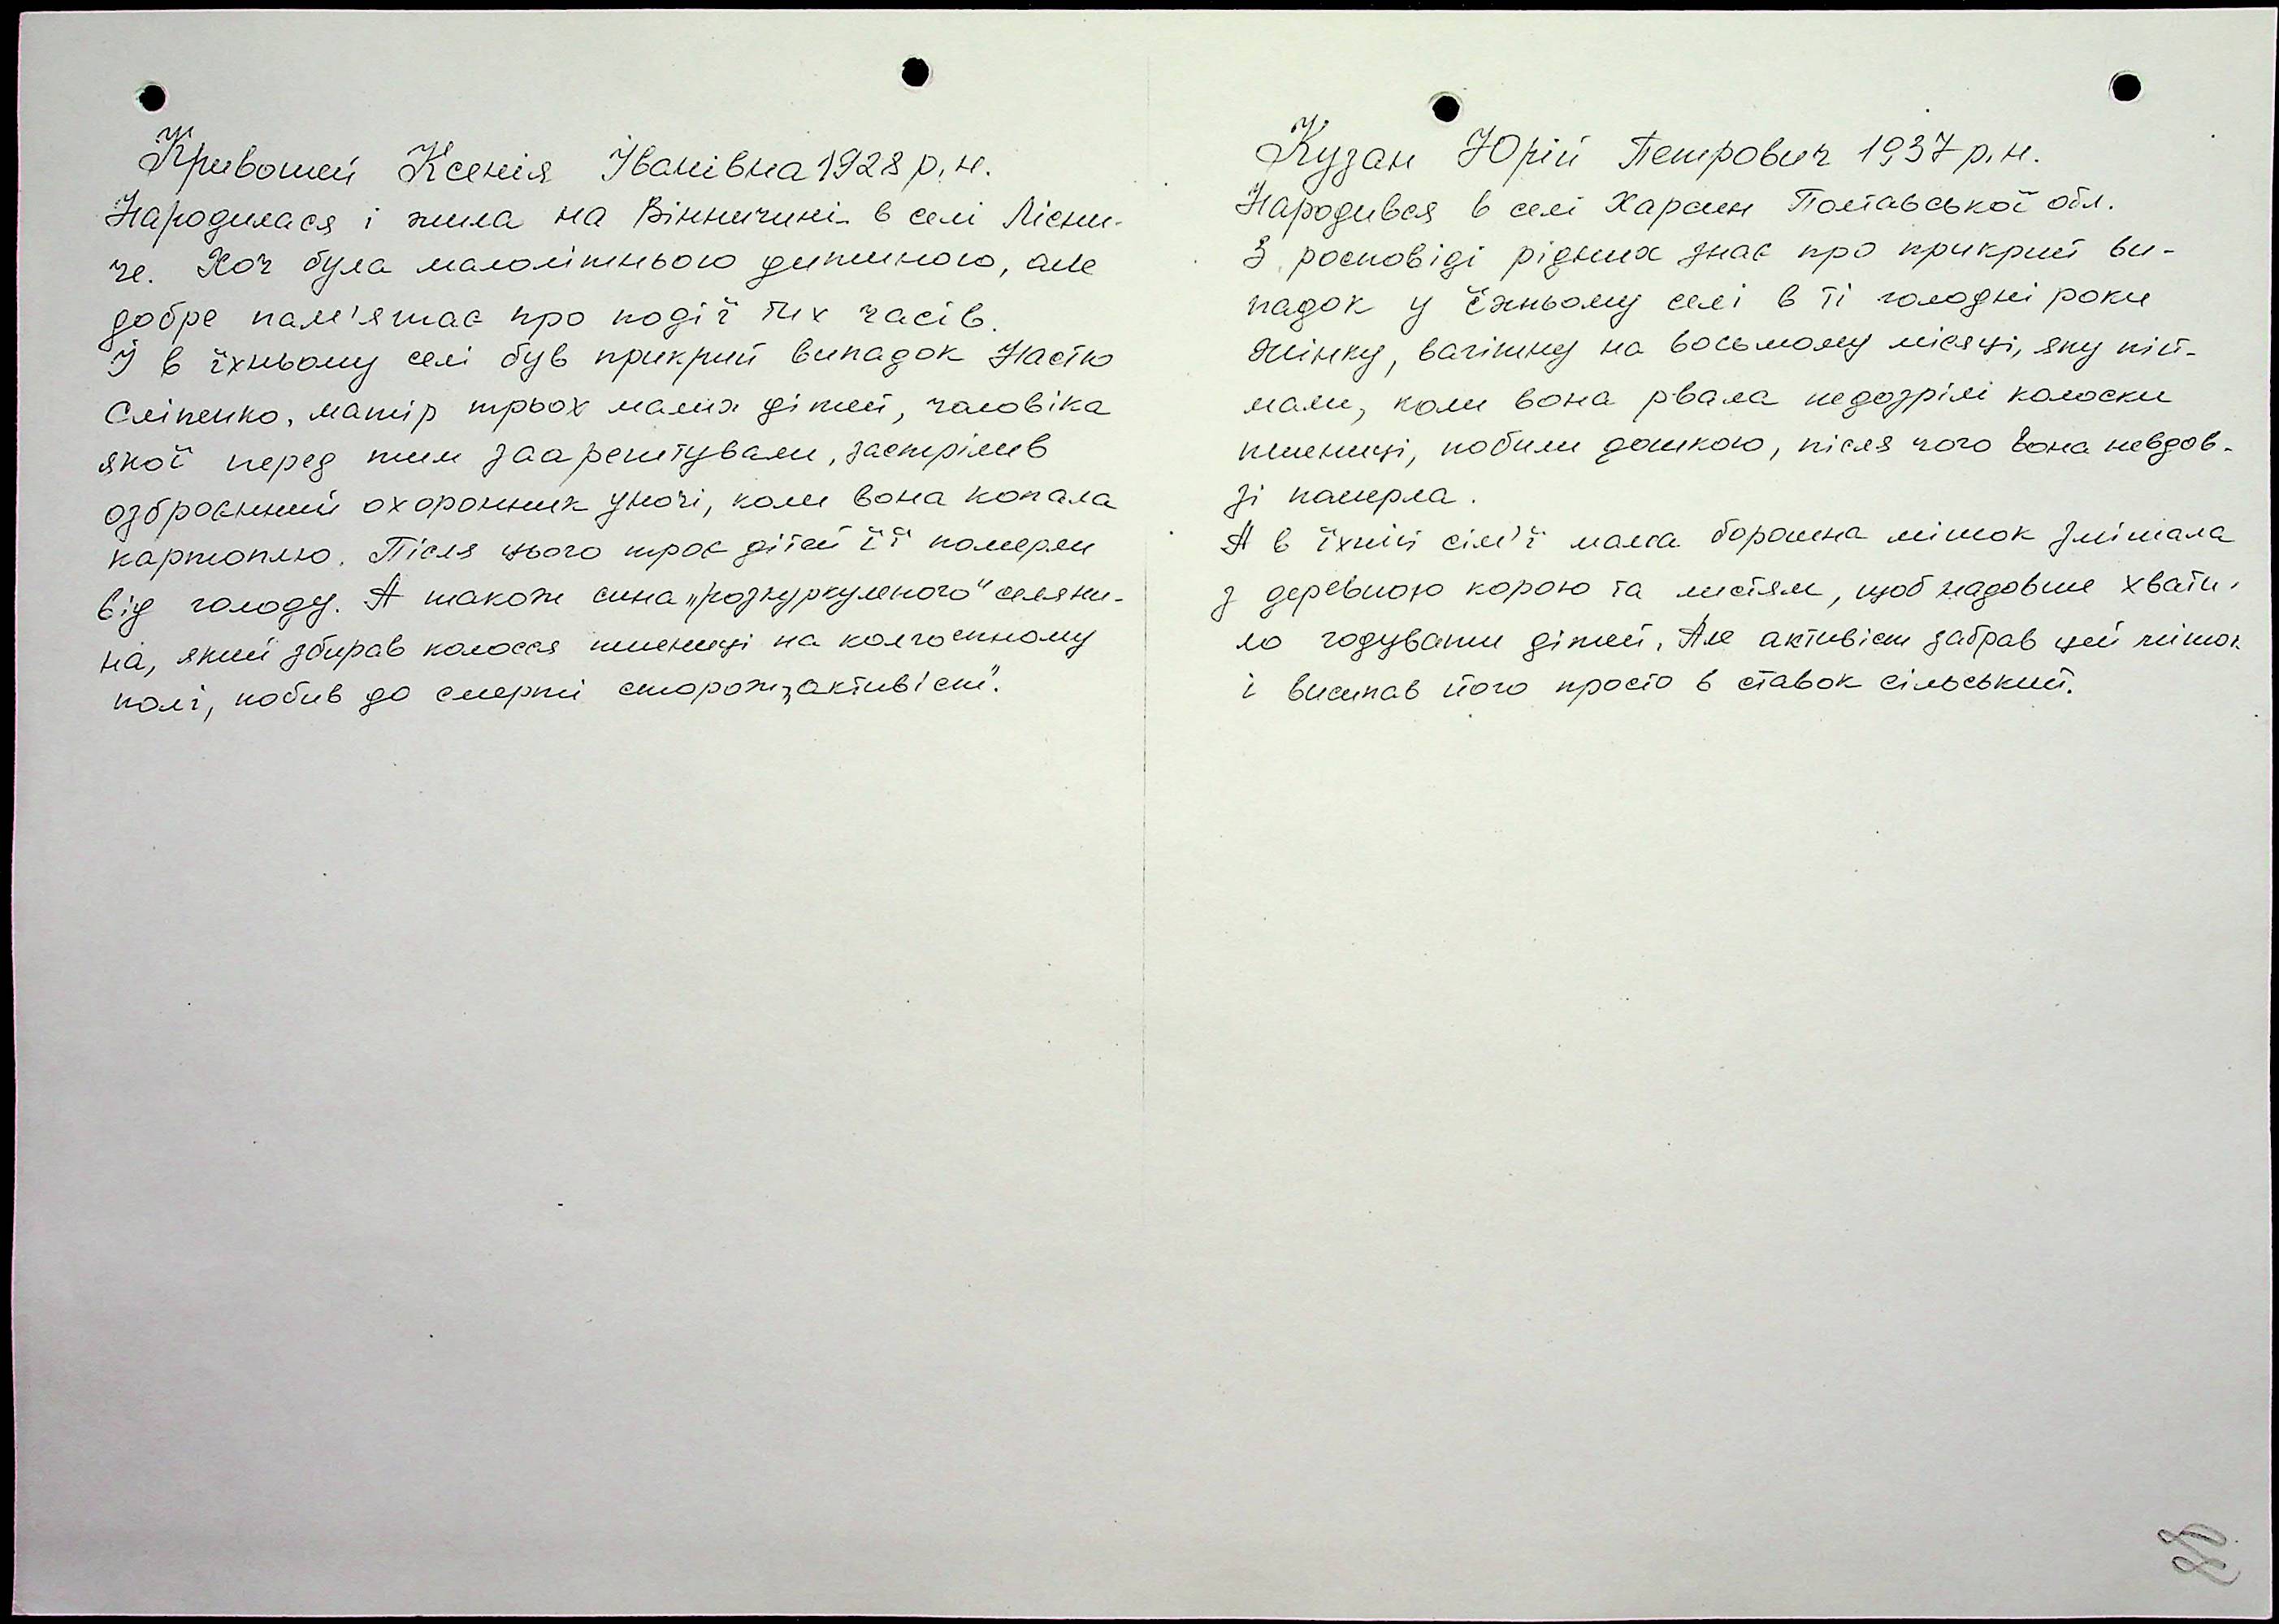 Кривошей Ксенія Іванівна 1928 р.н.
Народилася і жила на Вінничині в селі Лісни-
че. Хоч була малолітнього дитиною, але
добре пам'ятає про події тих часів.
І в їхньому селі був прикрий випадок Настю
Сліпенко, матір трьох малих дітей, чоловіка
якої перед тим заарештували, застрілив
озброєнний охоронник уночі, коли вона копала
картоплю. Після цього троє дітей її померли
від голоду. А також сина „розкуркуленого" селяни-
на, який збирав колосся пшениці на колгоспному
полі, побив до смерті сторож, активіст".
Кузан Юрій Петрович 1937 р.н.
Народився в селі Полтавської обл.
З росповіді рідних знає про прикрий ви-
падок у їхньому селі в ті голодні роки
жінку, вагітну на восьмому місяці, яку пій-
мали, коли вона рвала недозрілі колоски
пшениці, побили дошкою, після чого вона невдов-
зі померла.
А в їхній сім'ї мама борошна мішок змішала
з деревною корою та листям, щоб надовше хвати-
ло годувати дітей. Але активіст забрав цей мішок
і висипав його просто в ставок сільський.